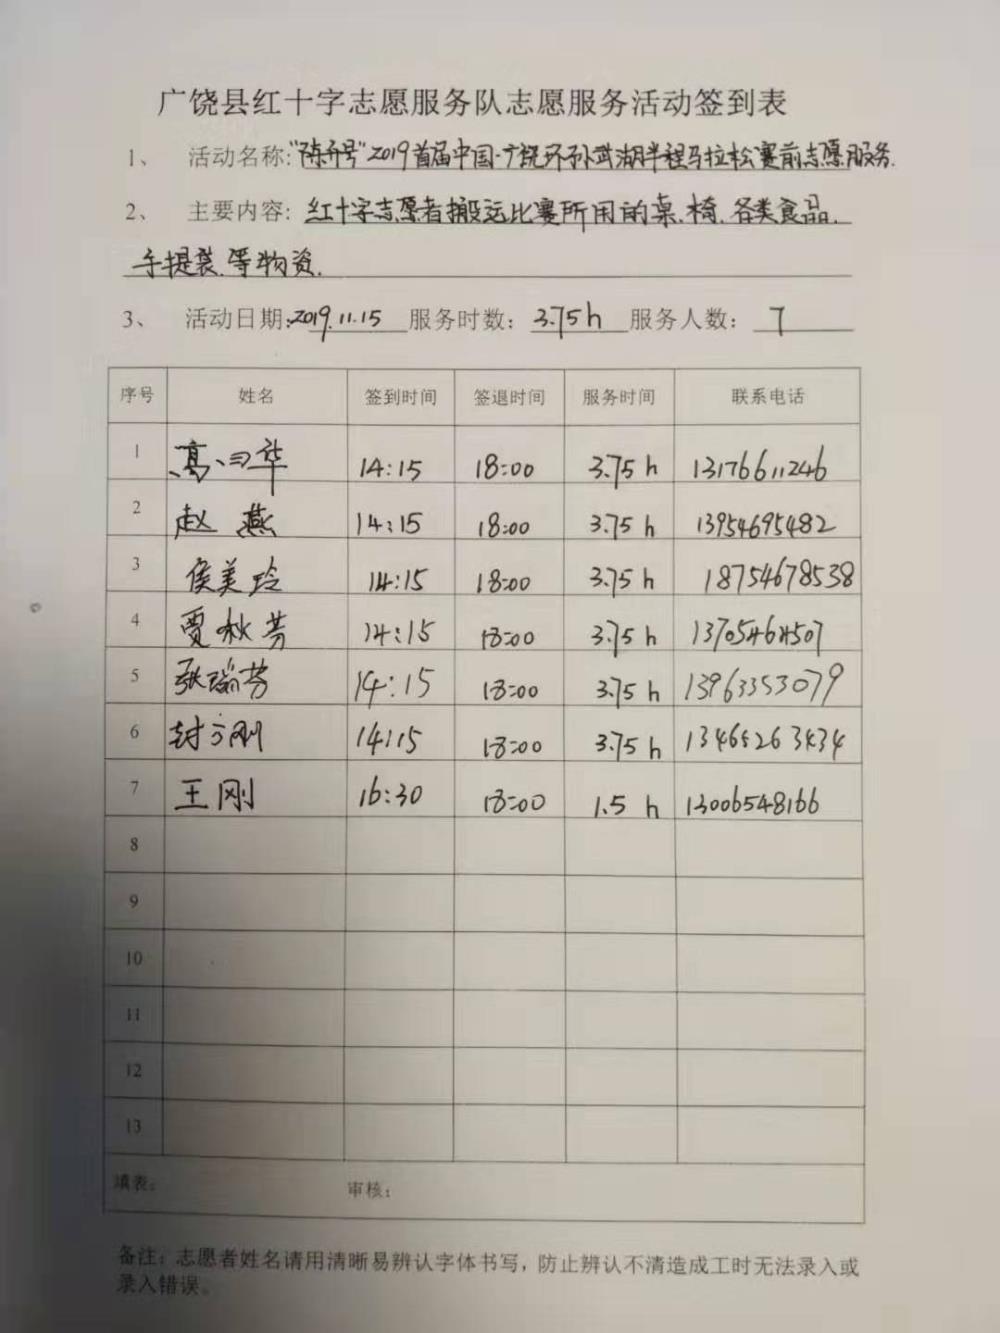 广饶县红十字志愿服务队志愿服务活动签到表
1、 活动名称:"陈升号"2019首届中国·广饶环孙武湖半程马拉松赛前志愿服务.
2、 主要内容: 红十字志愿者搬运比赛所用的桌、椅、各类食品、
手提袋、等物资.
3、 活动日期:2019.11.15 服务时数: 3.75h 服务人数: 7
序号 姓名 签到时间 签退时间 服务时间 联系电话
1 高 华 14:15 18:00 3.75 h 13176611246
2 赵 燕 14:15 18:00 3.75 h 13954695482
3 侯美玲 14:15 18:00 3.75 h 18754678538
4 贾秋芳 14:15 18:00 3.75 h 13705464507
5 张瑞芳 14:15 18:00 3.75 h 13963353079
6 封方刚 14:15 18:00 3.75 h
7 王刚 16:30 18:00 1.5 h 13006548166
8
9
10
11
12
13
填表: 审核:
备注: 志愿者姓名请用清晰易辨认字体书写，防止辨认不清造成工时无法录入或
录入错误。